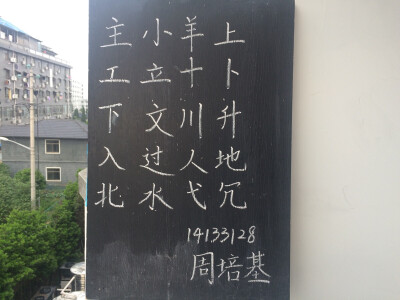 主小羊上
工立十卜
下文川升
入过人地
北水弋冗
14133128
周培基